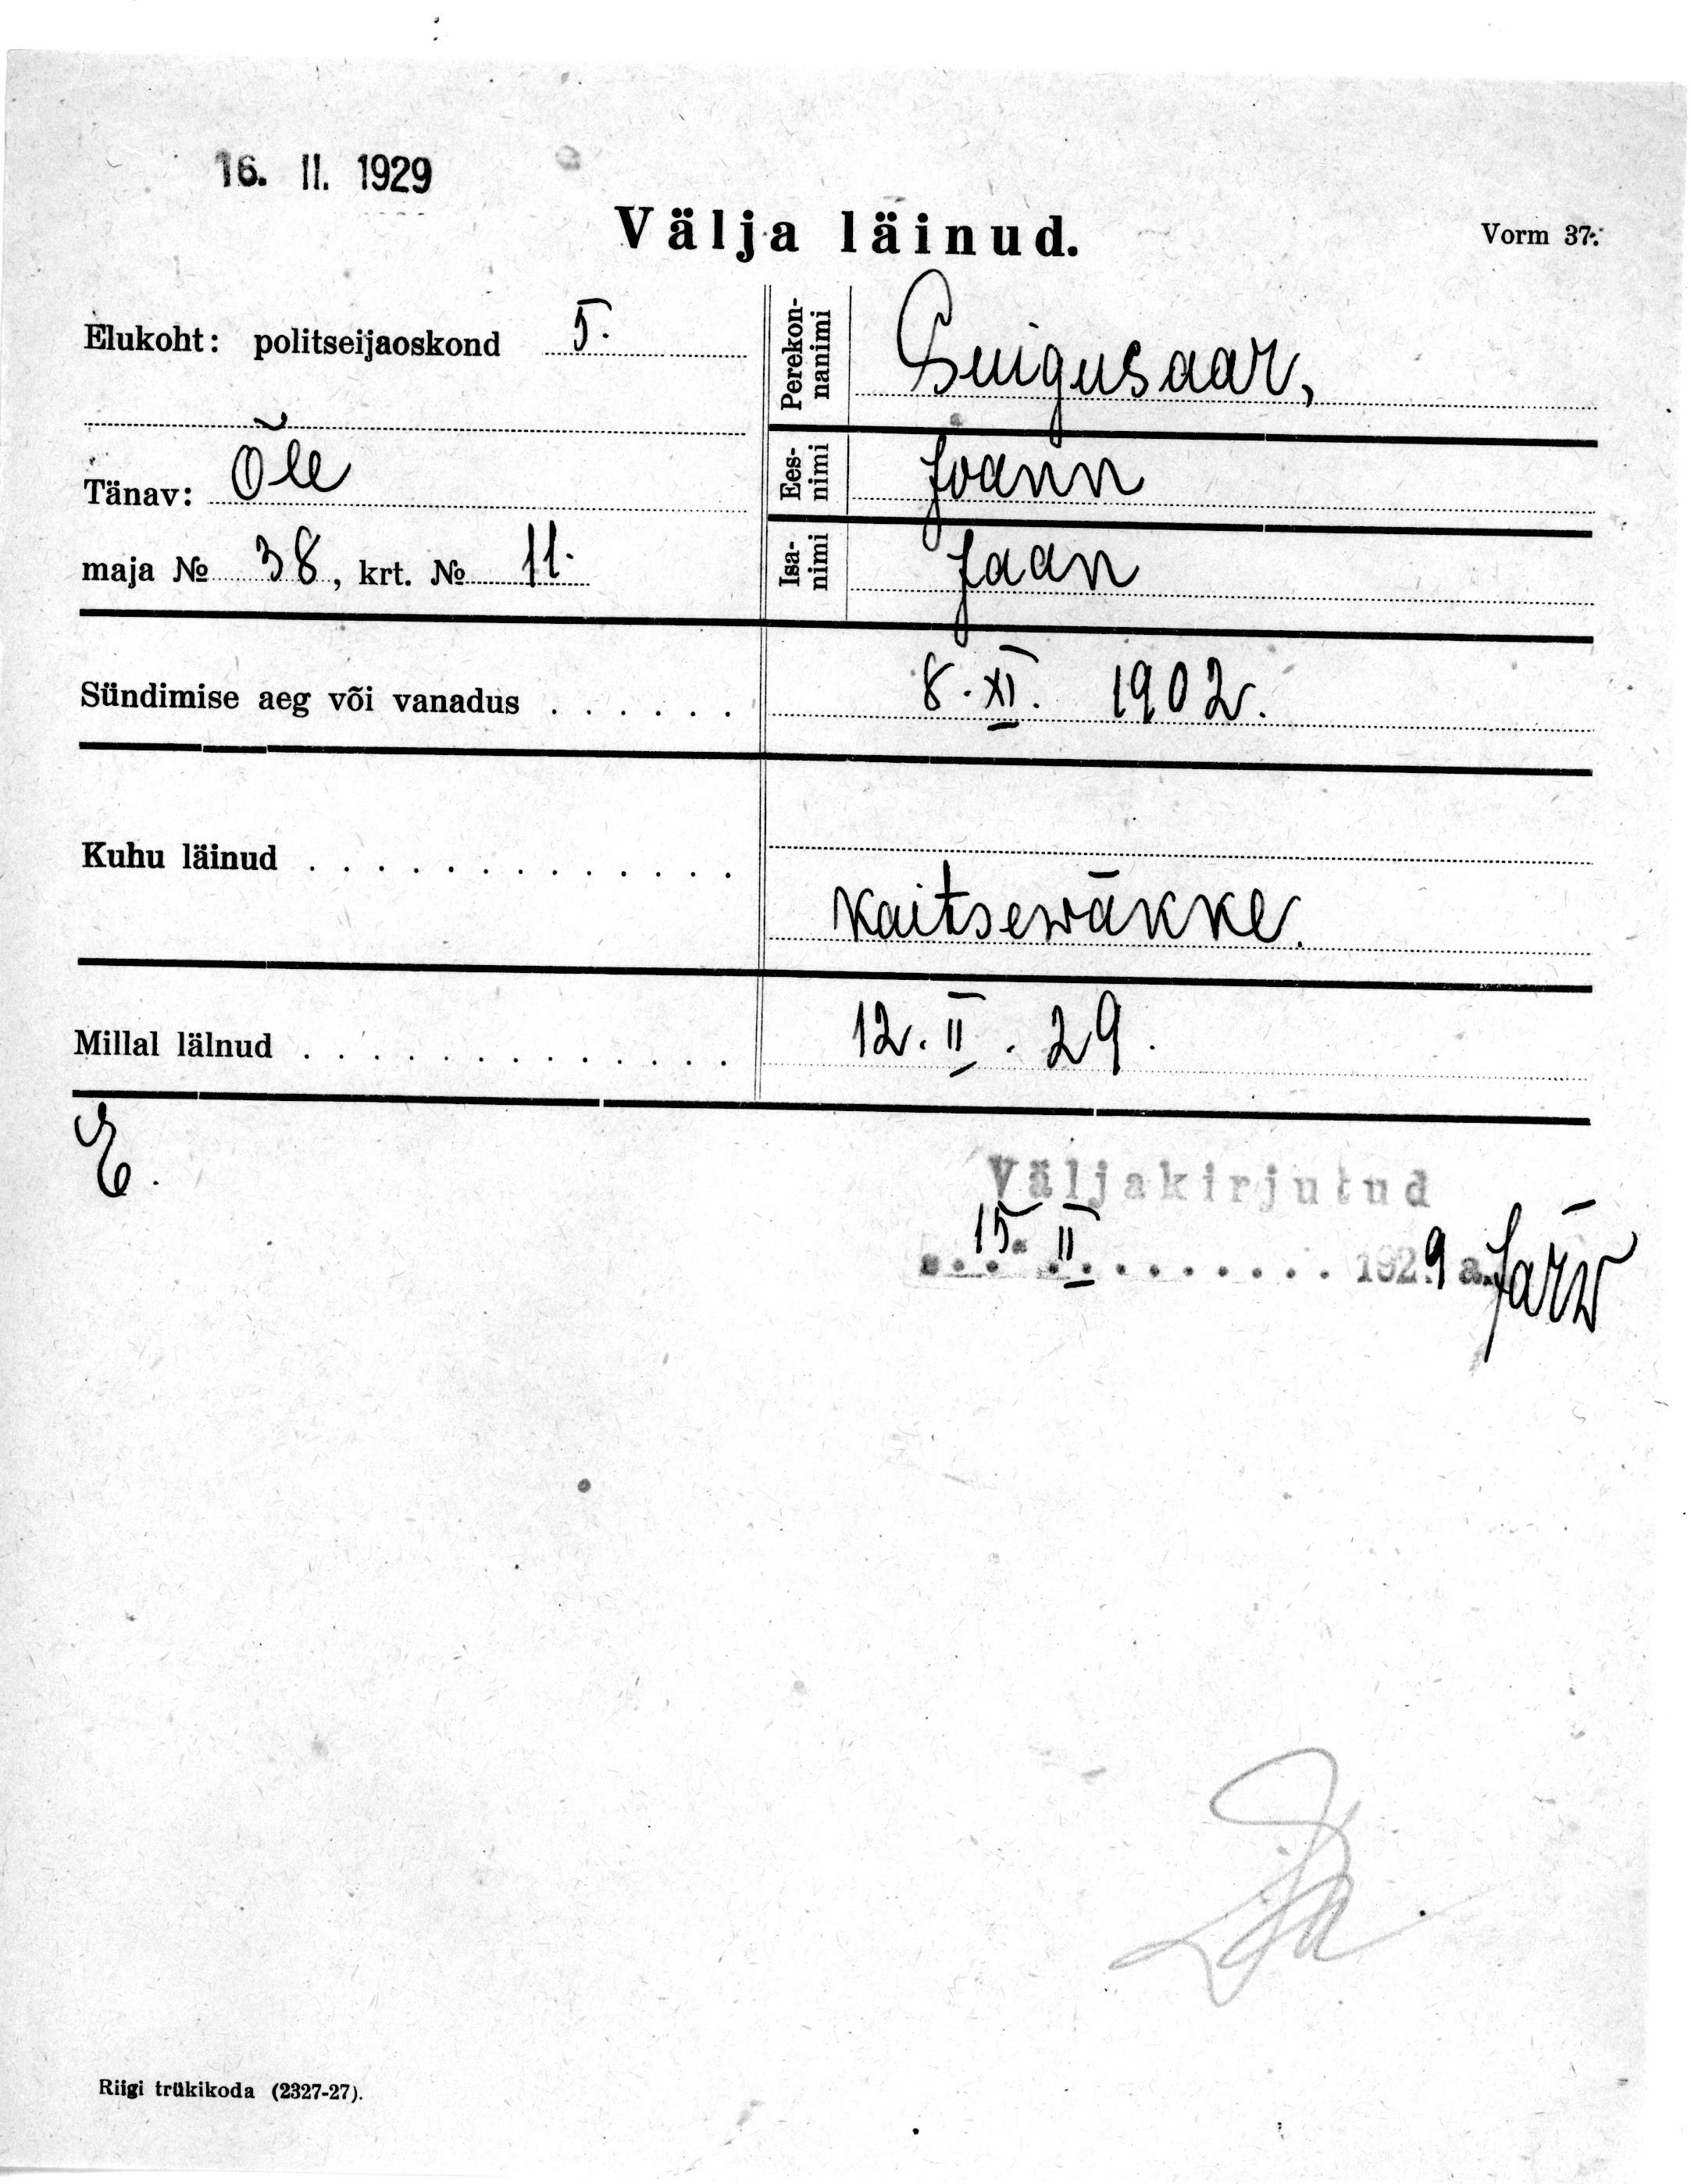 16. II. 1929
Välja läinud.
Vorm 37.
Elukoht: politseijaoskond 5.
Perekonnanimi Suigusaar,
Tänav: Õle
Eesnimi Joann
maja № 38, krt. № 11.
Isanimi Jaan
Sündimise aeg või vanadus . . . . . . 8. XI. 1902.
Kuhu läinud . . . . . . . . . . . . . kaitsewäkke.
Millal läinud . . . . . . . . . . . . . 12. II. 29.
E.
Väljakirjutud
15. II 1929 a. Järw
Riigi trükikoda (2327-27).